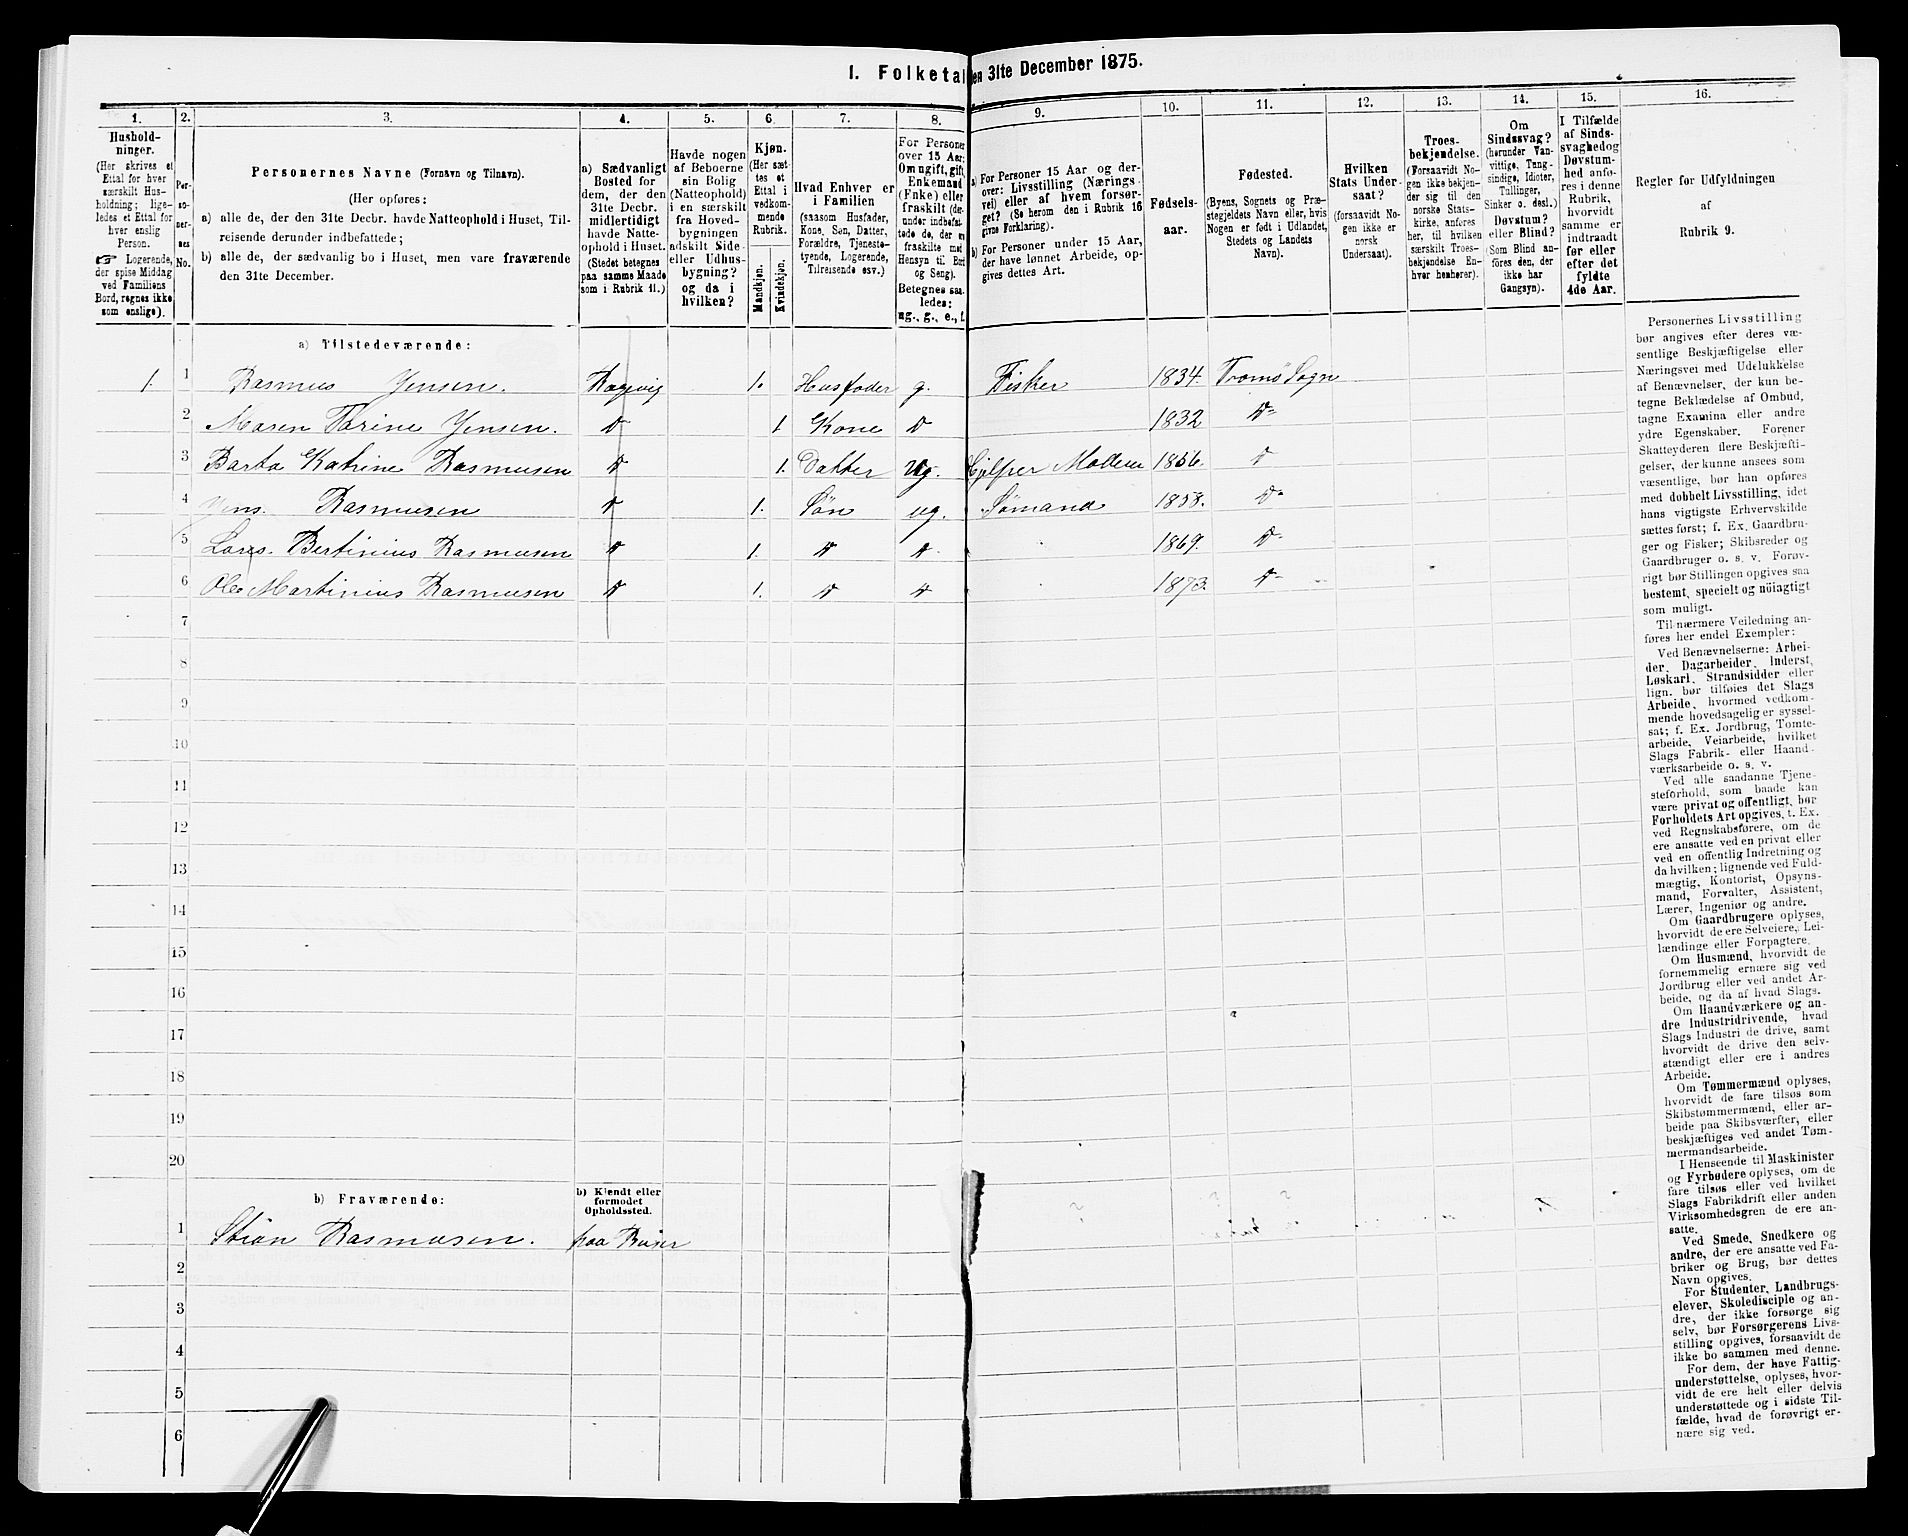 I. Folketal den 31te December 1875.
1. 2. 3. 4. 5. 6. 7. 8. 9. 10. 11. 12. 13. 14. 15. 16.
Hushold-
ninger.
(Her skrives et
Ettal for hver
særskilt Hus-
holdning; lige-
ledes et Ettal for
hver enslig
Person.
☞ Logerende,
der spise Middag
ved Familiens
Bord, regnes ikke
som enslige).
Per-
so-
ner-
nes
No.
Personernes Navne (Fornavn og Tilnavn).
(Her opføres:
a) alle de, der den 31te Decbr. havde Natteophold i Huset, Til-
reisende derunder indbefattede;
b) alle de, der sædvanlig bo i Huset, men vare fraværende
den 31te December.
a) Sædvanligt
Bosted for
dem, der den
31te Decbr.
midlertidigt
havde Natte-
ophold i Huset.
(Stedet betegnes
paa samme Maade
som i Rubrik 11.)
Havde nogen
af Beboerne
sin Bolig
(Natteophold)
i en særskilt
fra Hoved-
bygningen
adskilt Side-
eller Udhus-
bygning?
og da i
hvilken?
Kjøn.
(Her sæt-
tes et
Ettal i
vedkom-
mende
Rubrik.
Mandkjøn.
Kvindekjøn.
Hvad Enhver er
i Familien
(saasom Husfader,
Kone, Søn, Datter,
Forældre, Tjeneste-
tyende, Logerende,
Tilreisende osv.)
For Personer
over 15 Aar:
Om ugift, gift,
Enkemand
(Enke) eller
fraskilt (der-
under indbefat-
tede de, der ere
fraskilte med
Hensyn til Bord
og Seng).
Betegnes saa-
ledes:
ug., g., e., f.
a) For Personer 15 Aar og der-
over: Livsstilling (Nærings-
vei) eller af hvem forsør-
get? (Se herom den i Rubrik 16
givne Forklaring).
b) For Personer under 15 Aar,
der have lønnet Arbeide, op-
gives dettes Art.
Fødsels-
aar.
Fødested.
(Byens, Sognets og Præ-
stegjeldets Navn eller, hvis
Nogen er født i Udlandet,
Stedets og Landets
Navn).
Hvilken
Stats Under-
saat?
(forsaavidt No-
gen ikke er
norsk
Undersaat).
Troes-
bekjendelse.
(Forsaavidt No-
gen ikke bekjen-
der sig til den
norske Stats-
kirke, anføres
her, til hvilken
særskilt Troes-
bekjendelse En-
hver henhører).
Om
Sindssvag?
(herunder Van-
vittige, Tung-
sindige, Idioter,
Tullinger,
Sinker o. desl.)
Døvstum?
eller Blind?
(Som Blind an-
føres den, der
ikke har
Gangsyn).
I Tilfælde
af Sinds-
svaghed og
Døvstum-
hed anfø-
res i denne
Rubrik,
hvorvidt
samme er
indtraadt
før eller
efter det
fyldte
4de Aar.
Regler for Udfyldningen
af
Rubrik 9.
a) Tilstedeværende:
1. 1 Rasmus Jensen. Ragevig 1. Husfader g. Fisker 1834. Tromø Sogn
2 Maren Torine Jensen. D 1 Kone D 1832 D
3 Barta Katrine Rasmusen D 1. Datter ug. Hjelper Modern 1856. D
4 Jens. Rasmusen D 1. Søn ug. Sømand 1858. D
5 Lars. Bertinius Rasmusen D 1. D D 1869. D
6 Ole Martinius Rasmusen D 1. D D 1873. D
7
8
9
10
11
12
13
14
15
16
17
18
19
20
b) Fraværende:
b) Kjendt eller
formodet
Opholdssted.
1 Stian Rasmusen. paa Reiser
2
3
4
5
6
Personernes Livsstilling
bør angives efter deres væ-
sentlige Beskjæftigelse eller
Næringsvei med Udelukkelse
af Benævnelser, der kun be-
tegne Beklædelse af Ombud,
tagne Examina eller andre
ydre Egenskaber. Forener
Skatteyderen flere Beskjæfti-
gelser, der kunne ansees som
væsentlige, bør han opføres
med dobbelt Livsstilling, idet
hans vigtigste Erhvervskilde
sættes først; f. Ex. Gaardbru-
ger og Fisker; Skibsreder og
Gaardbruger o. s. v. Forøv-
rigt bør Stillingen opgives saa
bestemt, specielt og nöiagtigt
som muligt.
Til nærmere Veiledning an-
føres her endel Exempler:
Ved Benævnelserne: Arbei-
der, Dagarbeider, Inderst,
Løskarl, Strandsidder eller
lign. bør tilføies det Slags
Arbeide, hvormed vedkom-
mende hovedsagelig er syssel-
sat; f. Ex. Jordbrug, Tomte-
arbeide, Veiarbeide, hvilket
Slags Fabrik- eller Haand-
værksarbeide o. s. v.
Ved alle saadanne Tjene-
steforhold, som baade kan
være privat og offentligt, bør
Forholdets Art opgives, t. Ex.
ved Regnskabsførere, om de
ere ansatte ved en privat eller
ved en offentlig Indretning og
da hvilken; lignende ved Fuld-
mægtig, Kontorist, Opsyns-
mand, Forvalter, Assistent,
Lærer, Ingeniør og andre.
Om Gaardbrugere oplyses,
hvorvidt de ere Selveiere, Lei-
lændinge eller Forpagtere.
Om Husmænd, hvorvidt de
fornemmelig ernære sig ved
Jordbrug eller ved andet Ar-
beide, og da af hvad Slags.
Om Haandværkere og an-
dre Industridrivende, hvad
Slags Industri de drive, samt
hvorvidt de drive den selv-
stændigt eller ere i andres
Arbeide.
Om Tømmermænd oplyses,
hvorvidt de fare tilsøs som
Skibstømmermænd, eller ar-
beide paa Skibsværfter, eller
beskjæftiges ved andet Tøm-
mermandsarbeide.
I Henseende til Maskinister
og Fyrbødere oplyses, om de
fare tilsøs eller ved hvilket
Slags Fabrikdrift eller anden
Virksomhedsgren de ere an-
satte.
Ved Smede, Snedkere og
andre, der ere ansatte ved Fa-
briker og Brug, bør dettes
Navn opgives.
For Studenter, Landbrugs-
elever, Skoledisciple og an-
dre, der ikke forsørge sig
selv, bør Forsørgerens Livs-
stilling opgives, forsaavidt de
ikke bo sammen med denne.
For dem, der have Fattig-
understøttelse, oplyses, hvor-
vidt de ere helt eller delvis
understøttede og i sidste Til-
fælde, hvad de forøvrigt er-
nære sig ved.